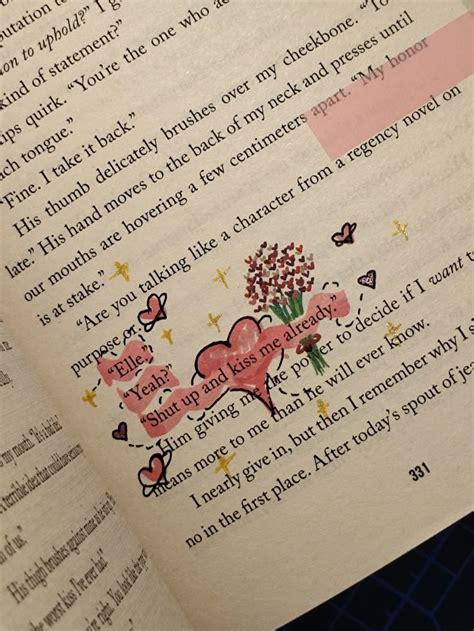 putation to
on to uphold?" I
kind of statement?"
ips quirk. "You're the one who
ch tongue."
"Fine. I take it back."
His thumb delicately brushes over my cheekbone. "To
late." His hand moves to the back of my neck and presses until
our mouths are hovering a few centimeters apart. "My honor
is at stake."
"Are you talking like a character from a regency novel on
purpose or
"Elle,"
"Yeah?"
"Shut up and kiss me already."
Him giving me the power to decide if I want
means more to me than he will ever know.
I nearly give in, but then I remember why I
no in the first place. After today's spout of
331
my mouth.
A terrible idea that could have
of us."
His thigh brushes against mine
the worst kiss I've ever had."